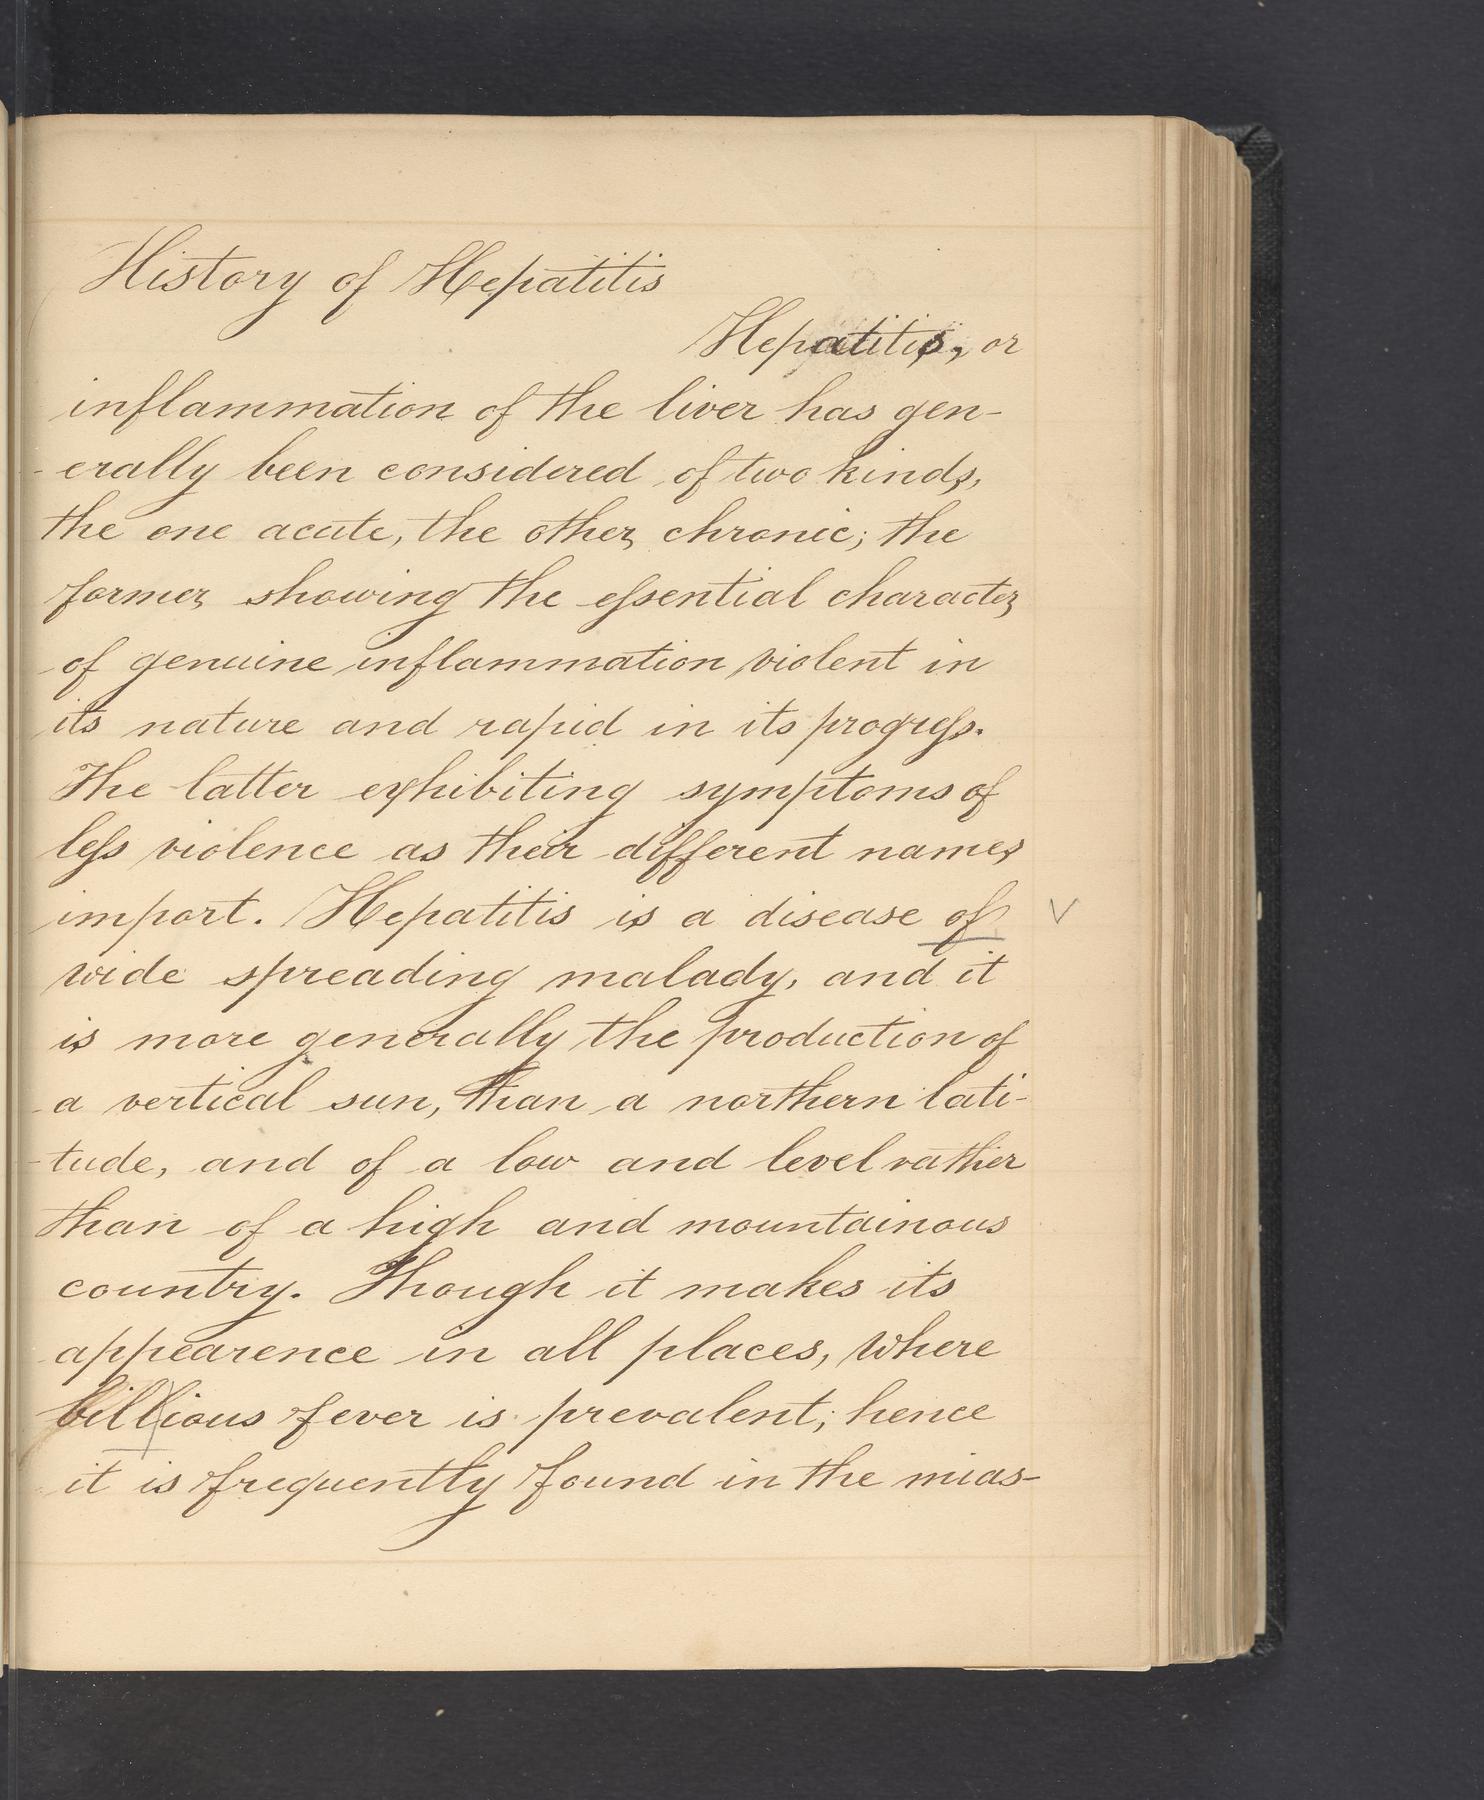 History of Hepatitis
Hepatitis, or
inflammation of the liver has gen-
-erally been considered of two kinds,
the one acute, the other chronic; the
former showing the essential character
of genuine inflammation violent in
its nature and rapid in its progress.
The latter exhibiting symptoms of
less violence as their different names
import. Hepatitis is a disease of
wide spreading malady, and it
is more generally the production of
a vertical sun, than a northern lati-
-tude, and of a low and level rather
than of a high and mountainous
country. Though it makes its
appearence in all places, where
billious fever is prevalent; hence
it is frequently found in the mias-